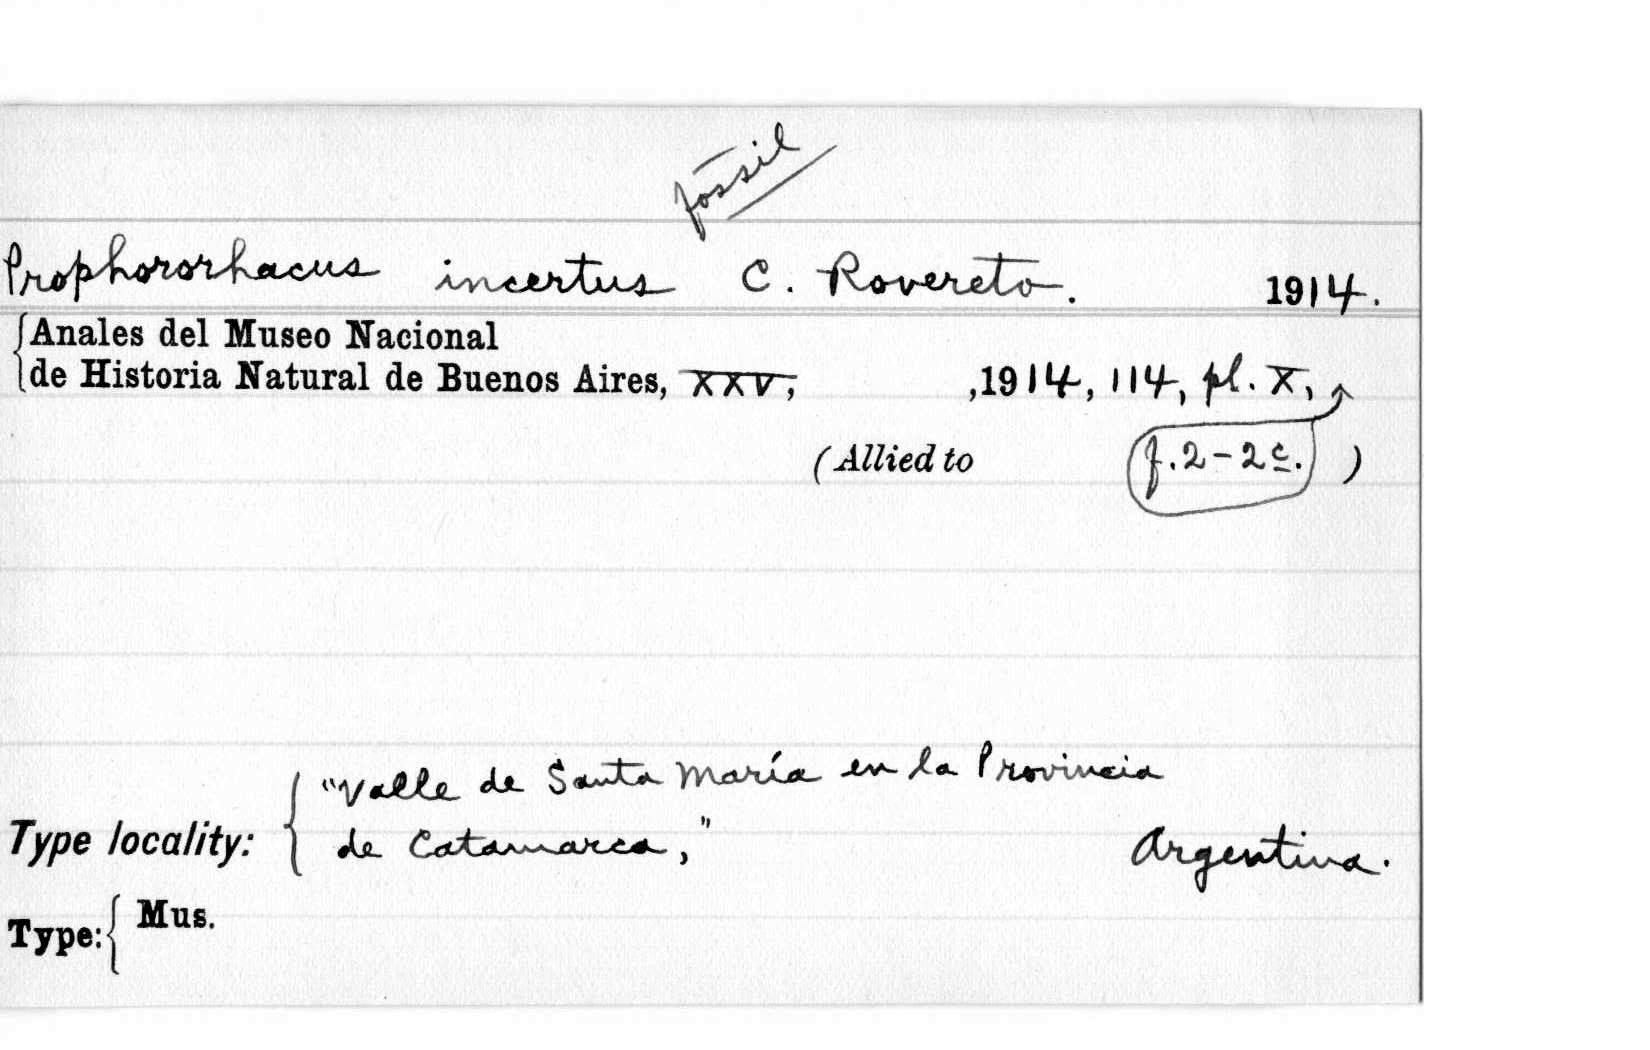 fossil
Prophororhacus incertus C. Rovereto. 1914.
Anales del Museo Nacional
de Historia Natural de Buenos Aires, XXV, ,1914, 114, pl. X,
(Allied to f.2-2c. )
"Valle de Santa María en la Provincia
Type locality: de Catamarca," Argentina.
Type: Mus.